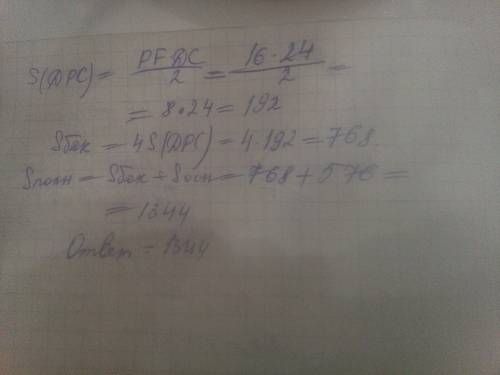 S(DPC) = PF·DC / 2 = 16·24 / 2 =
= 8·24 = 192
Sбок = 4S(DPC) = 4·192 = 768
Sполн = Sбок + Sосн = 768 + 576 =
= 1344
Ответ – 1344